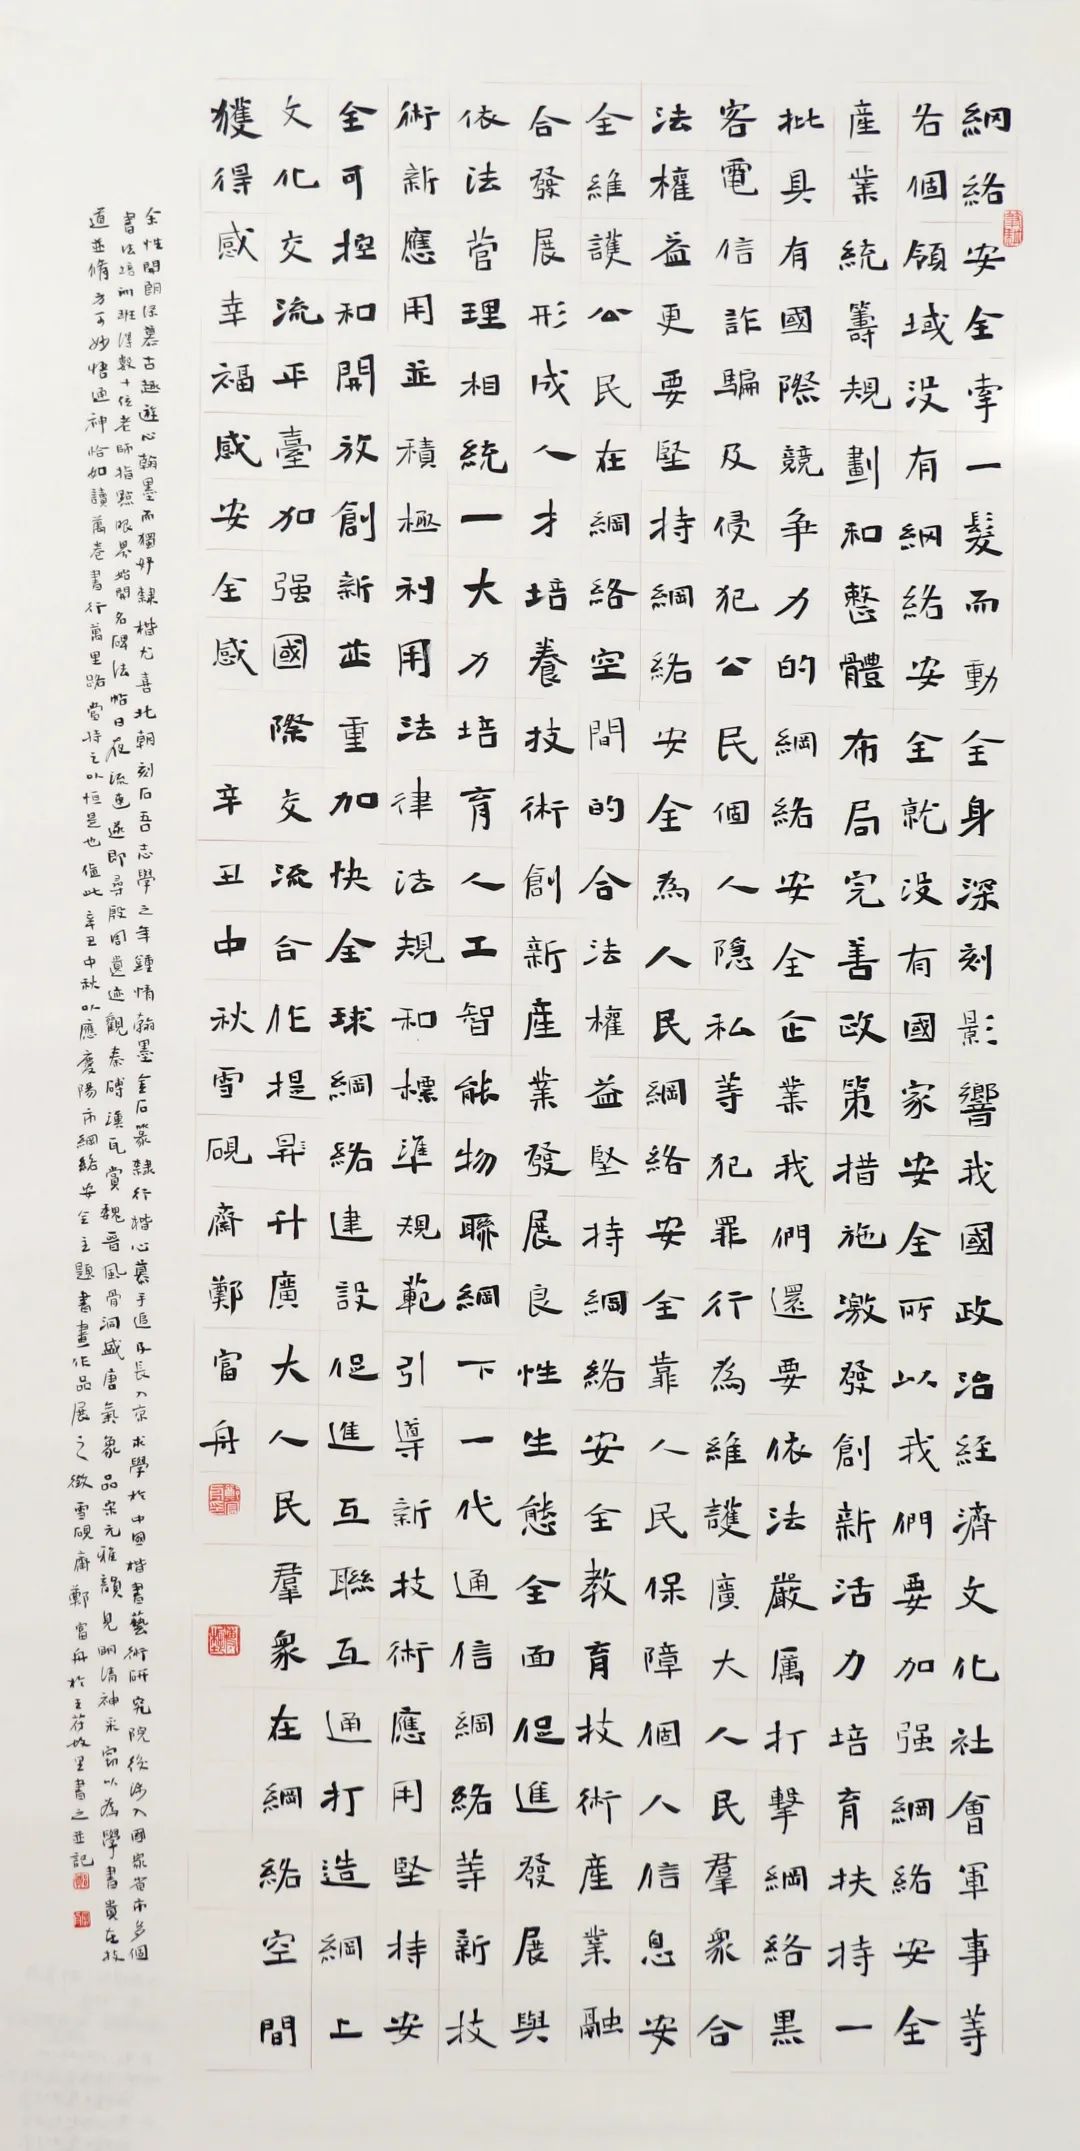 網絡安全牽一髮而動全身深刻影響我國政治經濟文化社會軍事等
各個領域没有網絡安全就没有國家安全所以我們要加强網絡安全
産業統籌規劃和整體布局完善政策措施激發創新活力培育扶持一
批具有國際競争力的網絡安全企業我們還要依法嚴厲打擊網絡黑
客電信詐騙及侵犯公民個人隱私等犯罪行為維護廣大人民羣衆合
法權益更要堅持網絡安全為人民網絡安全靠人民保障個人信息安
全維護公民在網絡空間的合法權益堅持網絡安全教育技術産業融
合發展形成人才培養技術創新産業發展良性生態全面促進發展與
依法管理相統一大力培育人工智能物聯網下一代通信網絡等新技
術新應用並積極利用法律法規和標準規範引導新技術應用堅持安
全可控和開放創新並重加快全球網絡建設促進互聯互通打造網上
文化交流平臺加强國際交流合作提昇升廣大人民羣衆在網絡空間
獲得感幸福感安全感 辛丑中秋雪硯齋鄭富舟
余性開朗深慕古趣遊心翰墨而獨好隸楷尤喜北朝刻石吾志學之年鍾情翰墨金石篆隸行楷心慕手追及長入京求學於中國楷書藝術研究院後涉入國家省市多個
書法培訓班得數十位老師指點眼界始開名碑法帖日夜流連遂即尋殷周遺迹觀秦磚漢瓦賞魏晋風骨洞盛唐氣象品宋元雅韻見明清神采竊以為學書貴在技
道並脩方可妙悟通神恰如讀萬卷書行萬里路當持之以恒是也值此辛丑中秋以應慶陽市網絡安全主題書畫作品展之徵雪硯齋鄭富舟於王符故里書之並記